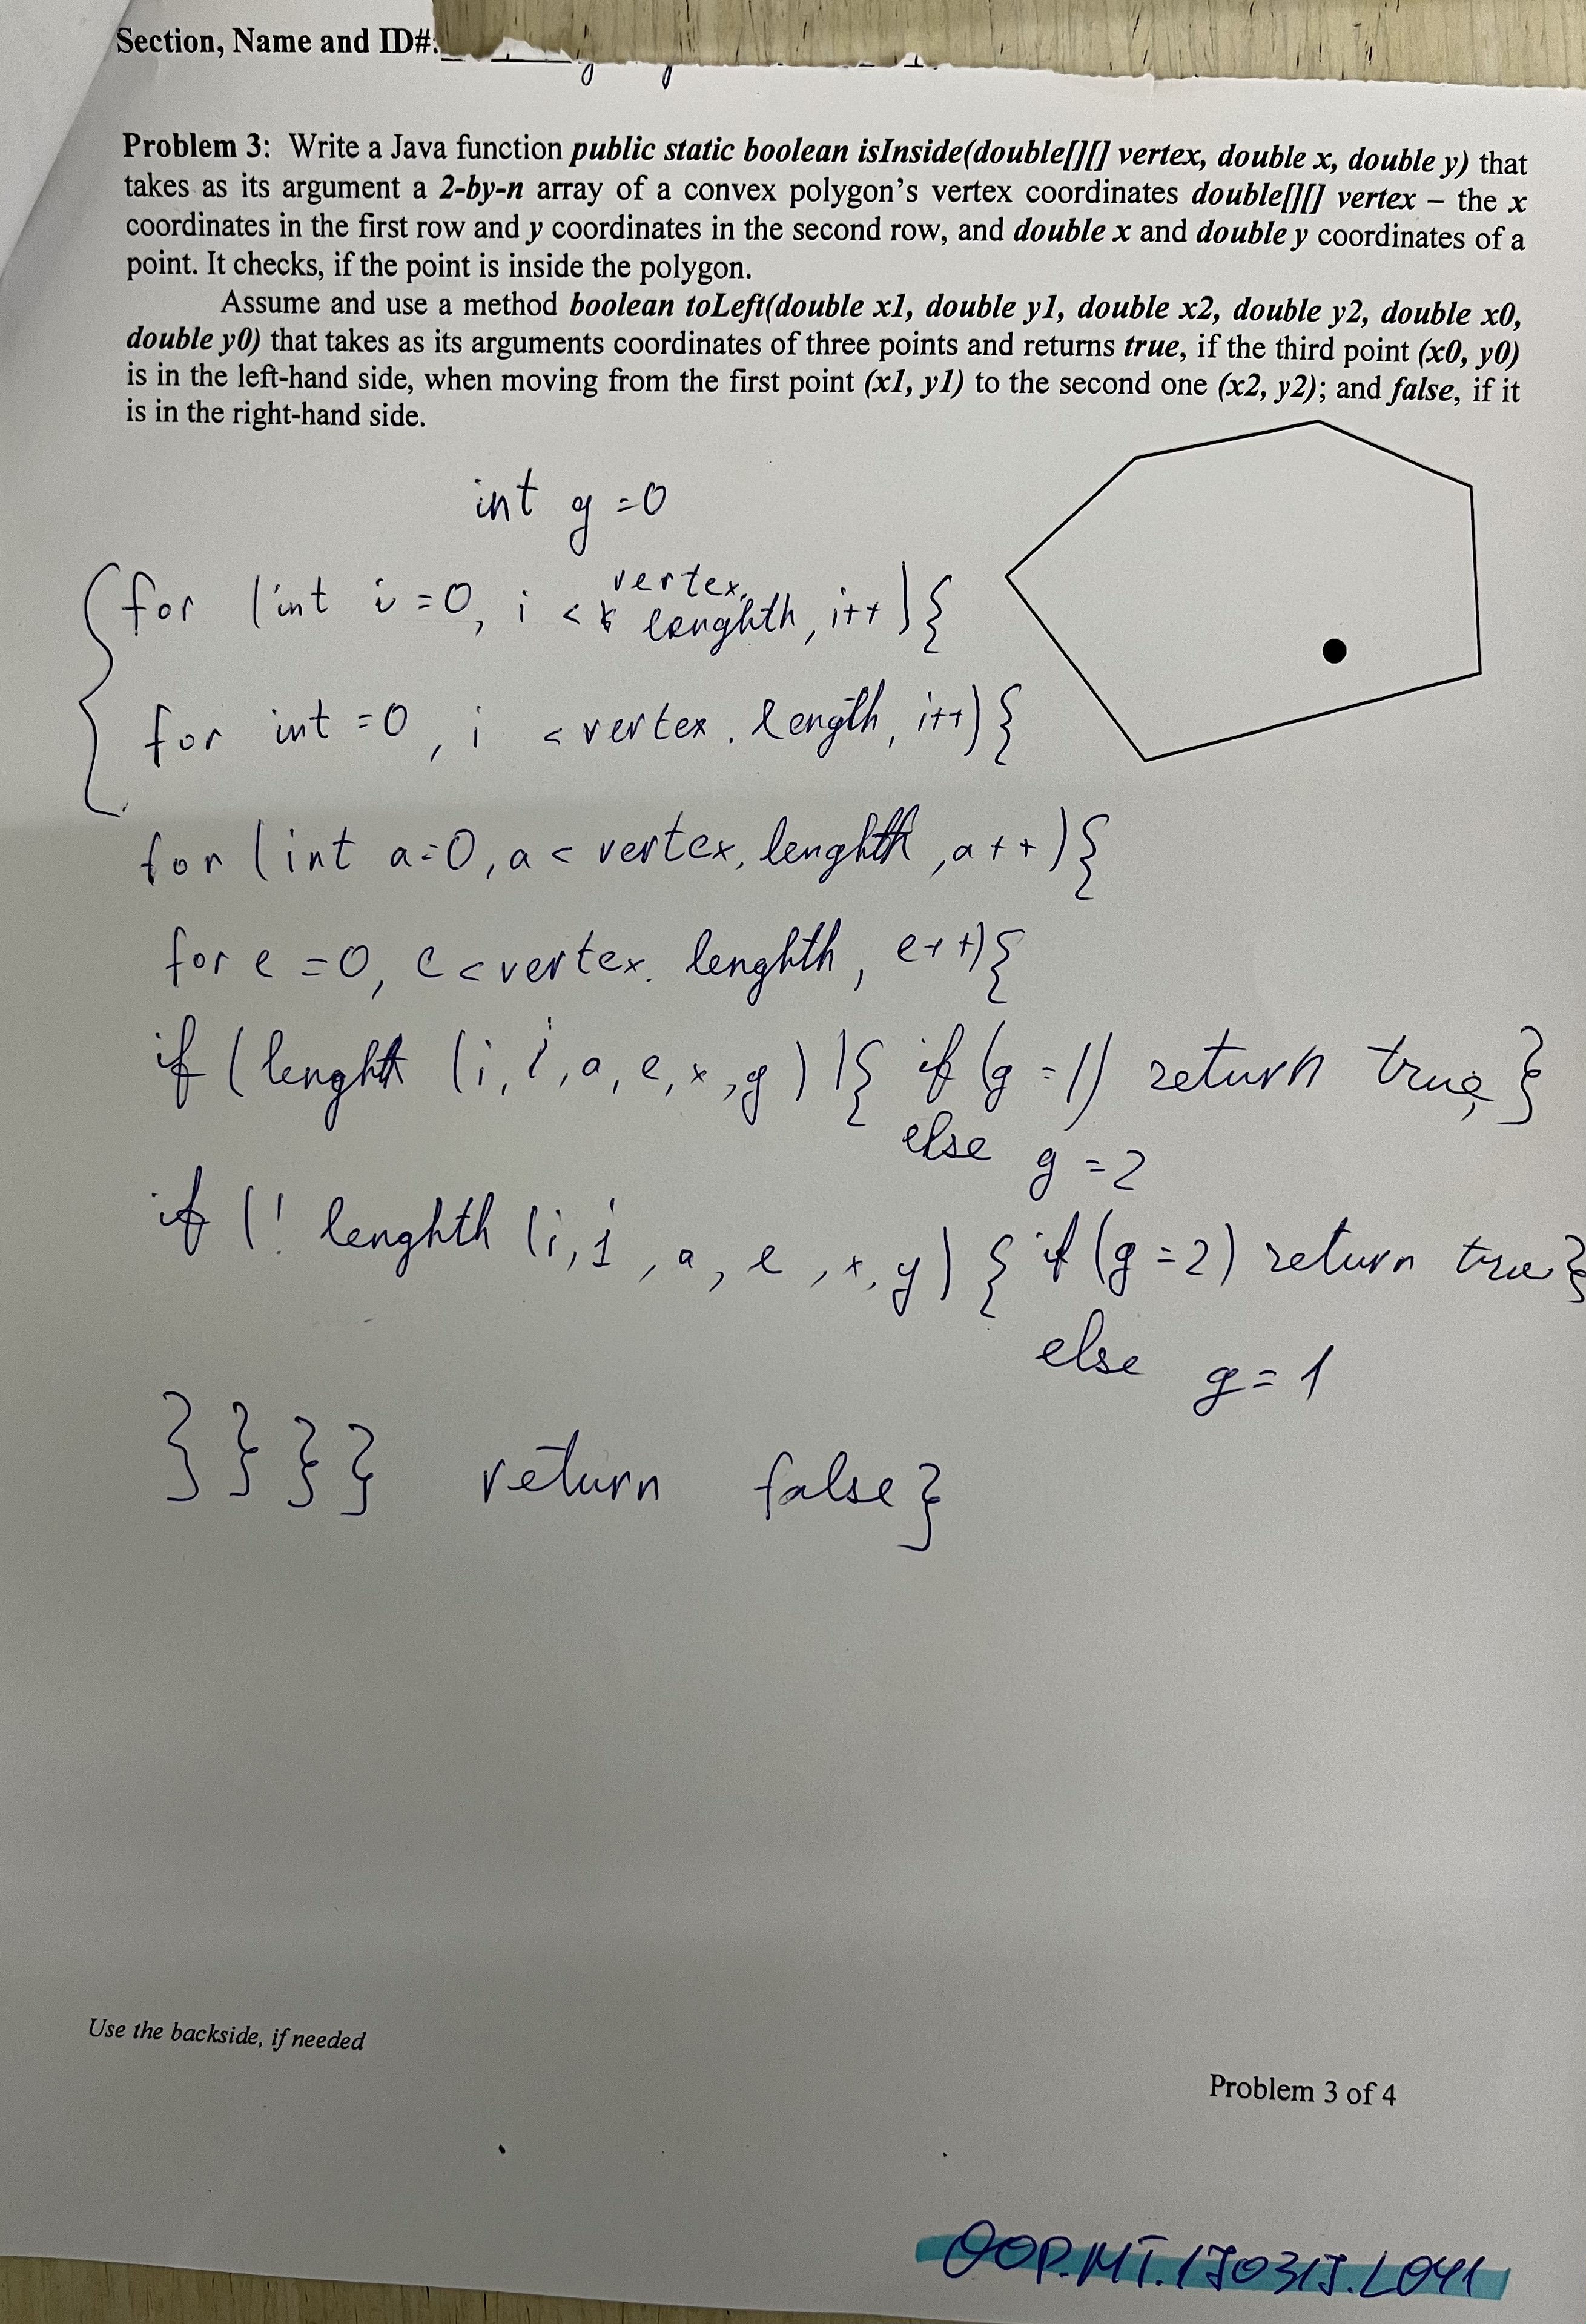 Section, Name and ID#:
Problem 3: Write a Java function public static boolean isInside(double[][] vertex, double x, double y) that
takes as its argument a 2-by-n array of a convex polygon's vertex coordinates double[][] vertex – the x
coordinates in the first row and y coordinates in the second row, and double x and double y coordinates of a
point. It checks, if the point is inside the polygon.
Assume and use a method boolean toLeft(double x1, double y1, double x2, double y2, double x0,
double y0) that takes as its arguments coordinates of three points and returns true, if the third point (x0, y0)
is in the left-hand side, when moving from the first point (x1, y1) to the second one (x2, y2); and false, if it
is in the right-hand side.
int g =0
for (int i =0, i < vertex. lenghth, i++){
for int =0, i < vertex. length, i++){
for (int a=0, a < vertex. lenghth, a++){
for e =0, e < vertex. lenghth, e++){
if (lenght (i, i, a, e, x, y)){ if (g =1) return true, }
else g =2
if (! lenghth (i, j, a, e, x, y) { if (g =2) return true}
else g = 1
}}}} return false}
Use the backside, if needed
Problem 3 of 4
OOP.MT.150315.L041